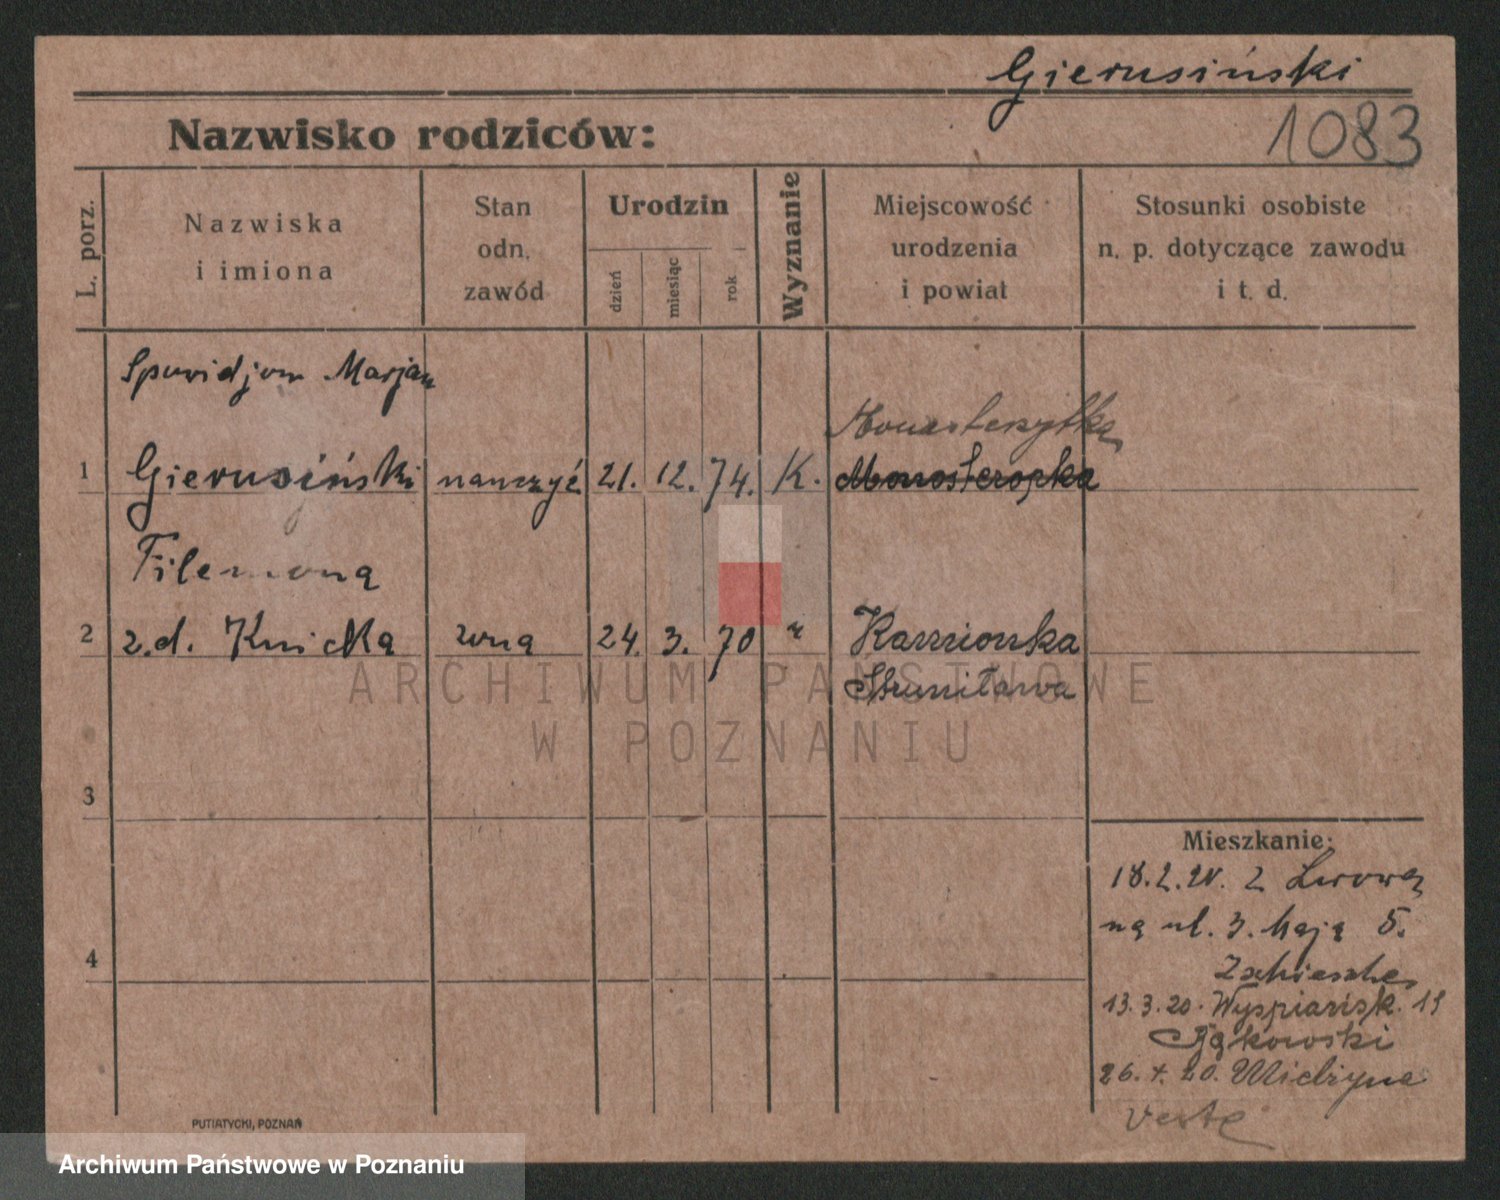 Gierusiński
1083
Nazwisko rodziców:
L. porz.
Nazwiska
i imiona
Stan
odn.
zawód
Urodzin
dzień
miesiąc
rok
Wyznanie
Miejscowość
urodzenia
i powiat
Stosunki osobiste
n. p. dotyczące zawodu
i t. d.
Marjan
1 Gierusiński nauczyć 21. 12. 74. K. Monasteropka
Filemona
2 z.d. 24. 3. 70 Kamionka
Strumiłowa
ARCHIWUM PAŃSTWOWE
W POZNANIU
3
4
Mieszkanie:
18.2.20. z Lwowa
na ul. 3. Maja 5.
13.3.20. Wyspiańsk.
26. 4. 20.
PUTIATYCKI, POZNAŃ
Archiwum Państwowe w Poznaniu